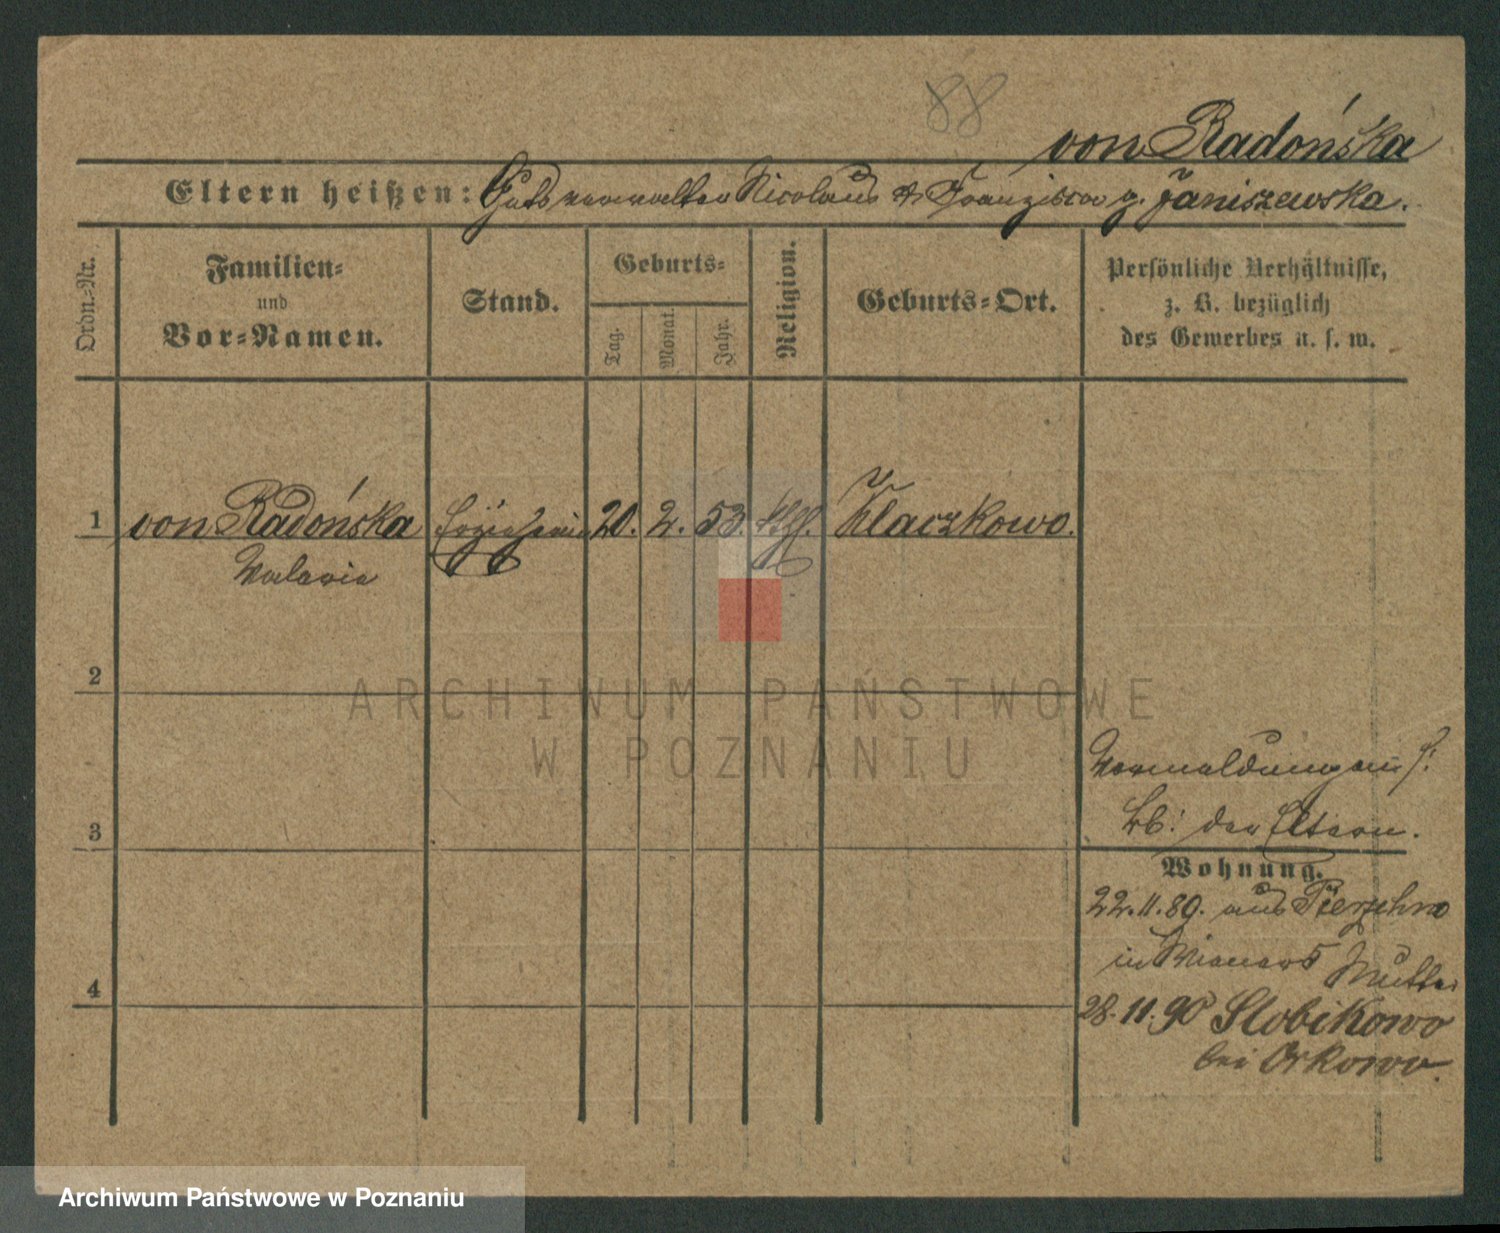 88
von Radońska
Eltern heißen: Gutsverwalter Nicolaus & Franziska g. Janiszewska.
Ordn.-Nr.
Familien-
und
Vor-Namen.
Stand.
Geburts-
Tag.
Monat.
Jahr.
Religion.
Geburts-Ort.
Persönliche Verhältnisse,
z. B. bezüglich
des Gewerbes u. s. w.
1 von Radońska Erzieherin 20. 2. 53. kth. Klaczkowo.
Valeria
2
ARCHIWUM PAŃSTWOWE
W POZNANIU
Vermeldungen s:
3
der Eltern.
Wohnung.
22.11.89. aus Pierzchno
in Mutter
4
28.11.90 Slobikowo
bei Orkowo.
Archiwum Państwowe w Poznaniu